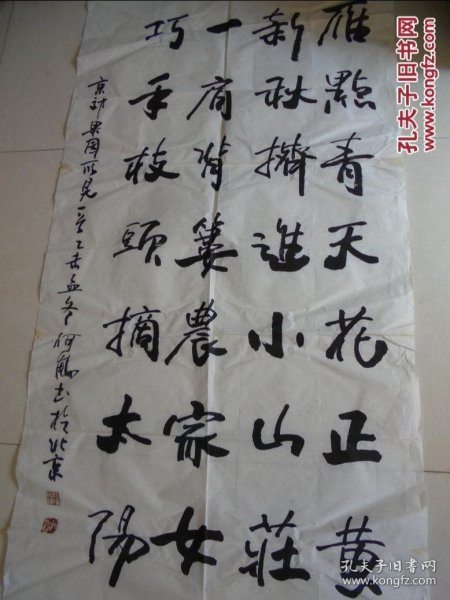 雁點青天花正黄
新秋擠進小山莊
一肩背簍農家女
巧手枝頭摘太陽
京郊果園所見一首乙未孟冬何鶴书於北京
孔夫子旧书网
www.kongfz.com
孔夫子旧书网